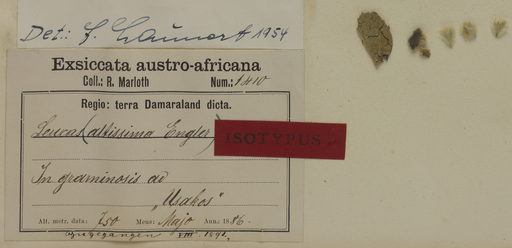 Det.: J. Launert 1954
Exsiccata austro-africana
Coll.: R. Marloth Num.: 1410
Regio: terra Damaraland dicta.
Leucas (altissima Engler)
ISOTYPUS
In graminosis ad
„Usakos"
Alt. metr. data: 750 Mens: Majo Ann.: 1886.
zugegangen VIII. 1891.